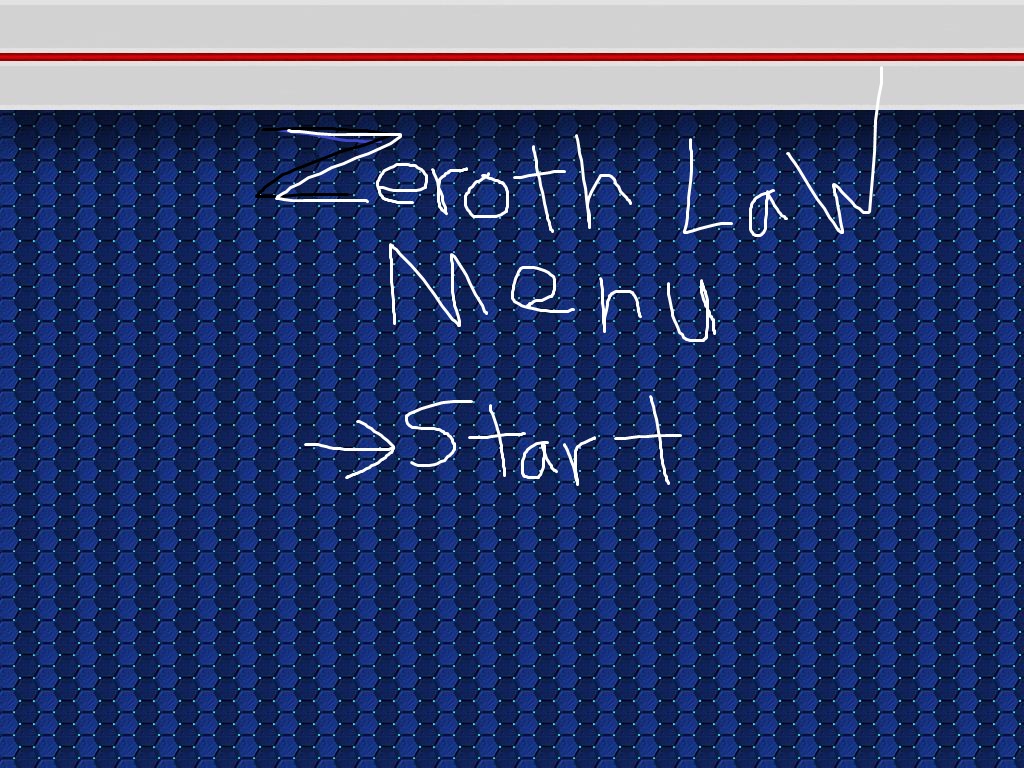 Zeroth Law
Menu
→Start